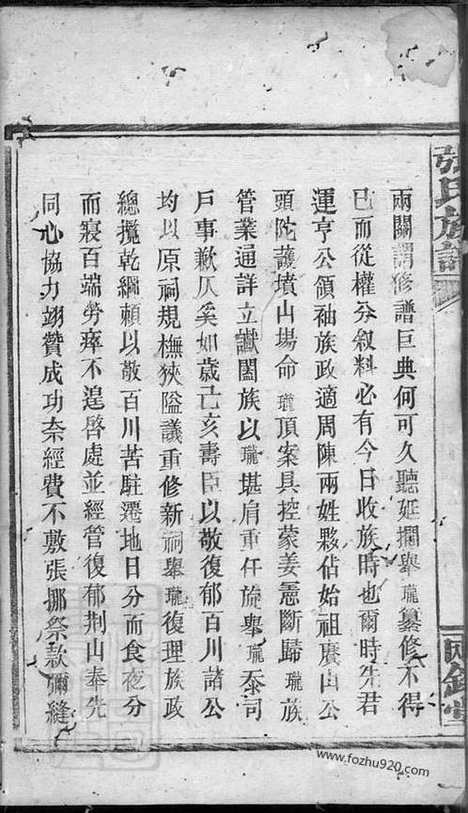 張氏族譜
兩關謂修譜巨典何可久聽延擱舉瓏纂修不得
已而從權分叙料必有今日收族時也爾時先君
運亨公領袖族政適周陳兩姓夥佔始祖廣山公
頭陀護墳山場命瓏頂案具控蒙姜憲斷歸瓏族
管業通詳立讞闔族以瓏堪肩重任旋舉瓏泰司
戶事歉仄奚如歲己亥壽臣以敬復郁百川諸公
均以原祠規橅狹隘議重修新祠舉瓏復理族政
總攬乾綱賴以敬百川苦駐遷地日分而食夜分
而寢百端勞瘁不遑啓處並經管復郁荆山奉先
同心協力翊贊成功奈經費不敷張挪祭款彌縫
www.fozhu920.com